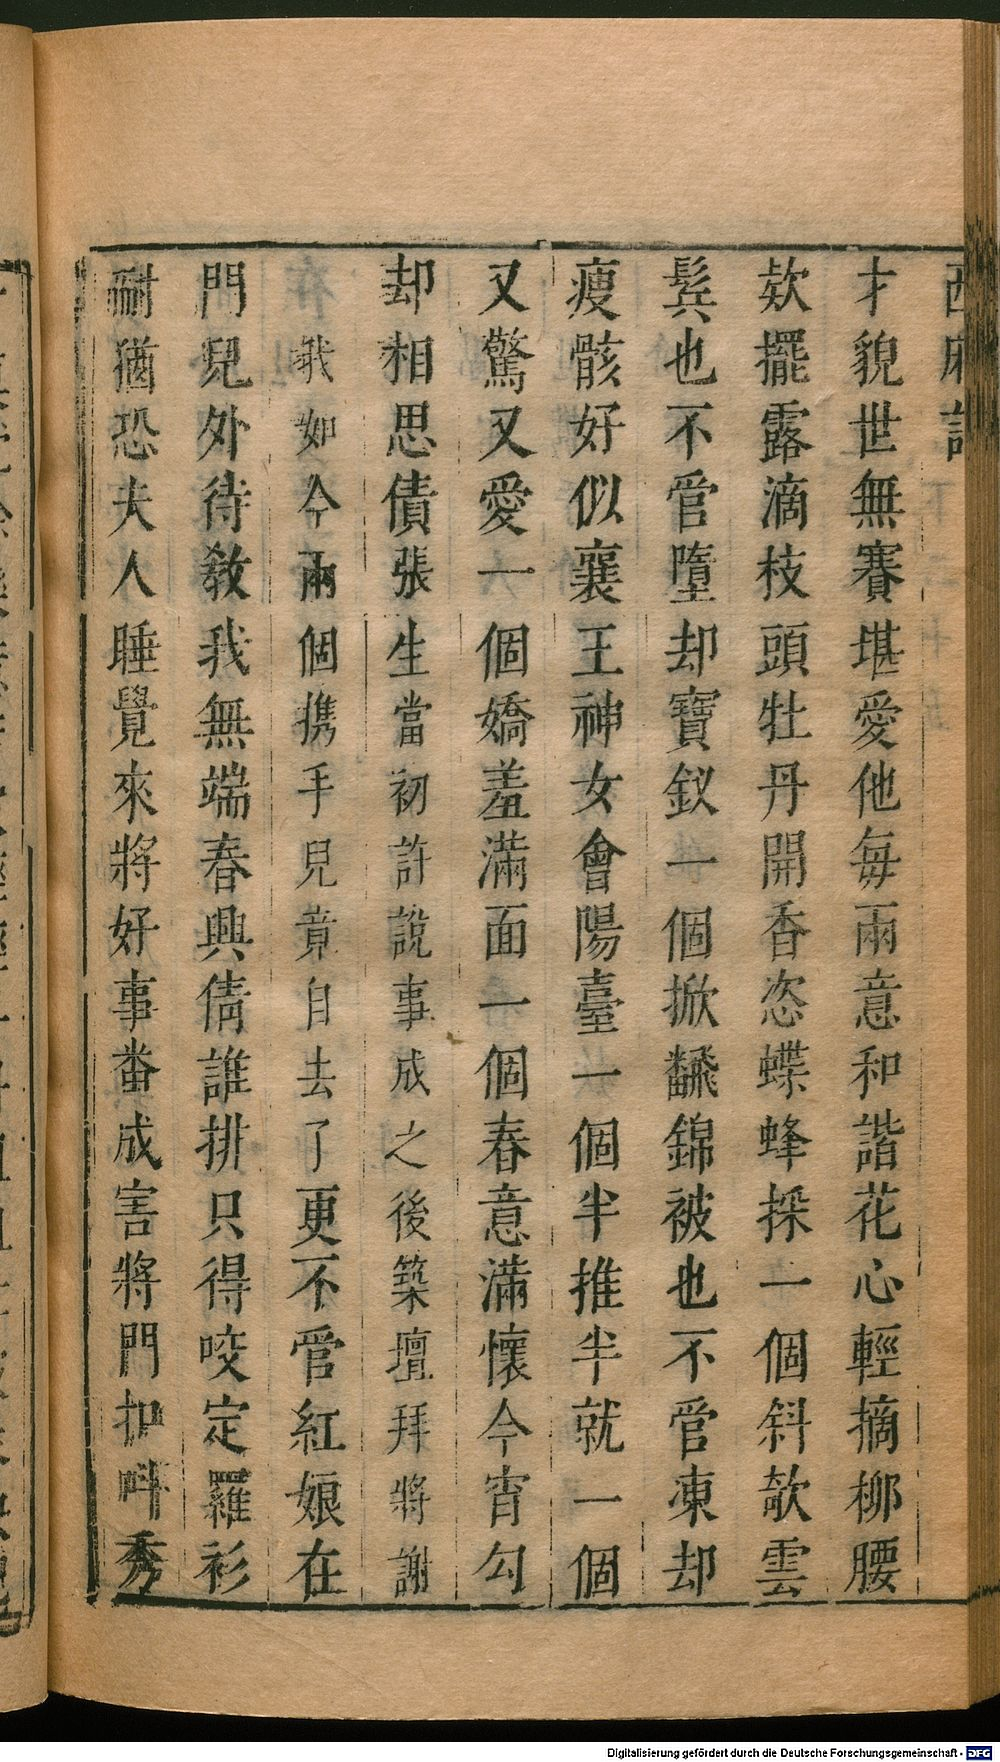 西廂記
才貌世無賽堪愛他每兩意和諧花心輕摘柳腰
欵擺露滴枝頭牡丹開香恣蝶蜂採一個斜欹雲
鬂也不管墮却寶釵一個掀飜錦被也不管凍却
瘦骸好似襄王神女會陽臺一個半推半就一個
又驚又愛一個嬌羞滿面一個春意滿懷今宵勾
却相思債張生當初許說事成之後築壇拜將謝
我如今兩個携手兒竟自去了更不管紅娘在
門兒外待敎我無端春興倩誰排只得咬定羅衫
耐猶恐夫人睡覺來將好事畨成害將門扣呌秀
Digitalisierung gefördert durch die Deutsche Forschungsgemeinschaft - DFG